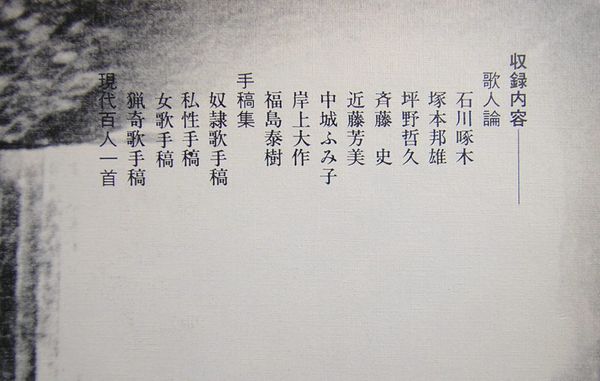 収録内容
歌人論
石川啄木
塚本邦雄
坪野哲久
斉藤 史
近藤芳美
中城ふみ子
岸上大作
福島泰樹
手稿集
奴隷歌手稿
私性手稿
女歌手稿
猟奇歌手稿
現代百人一首